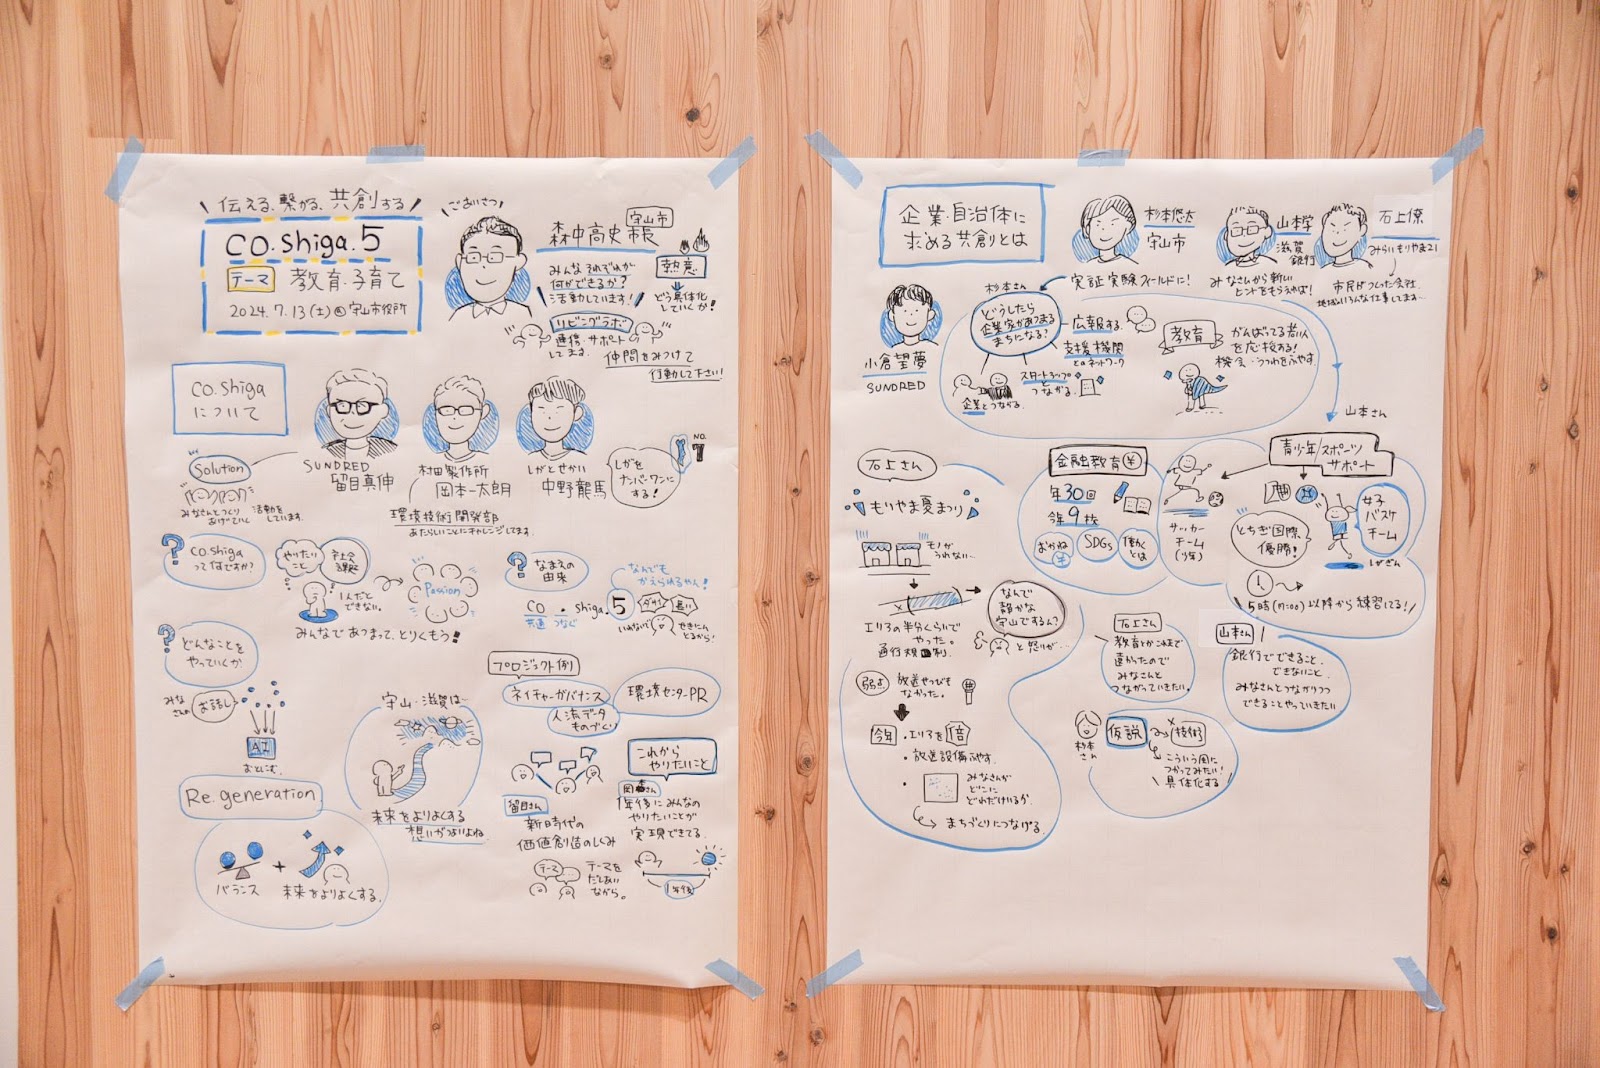 伝える、繋がる、共創する
co.shiga.5
テーマ 教育・子育て
2024.7.13(土)@守山市役所
ごあいさつ
守山市
森中高史 市長
みんなそれぞれが
何ができるか?
活動しています!
熱意
どう具体化
していくか!
リビングラボ
通信・サポート
してます。
仲間をみつけて
行動して下さい!
co.shiga
について
SUNDRED
留目真伸
村田製作所
岡本一太朗
しがとせかい
中野龍馬
しがを
ナンバーワンに
する!
NO.
1
Solution
みなさんとつくり
あげていく
活動を
しています。
環境技術開発部
あたらしいことにチャレンジしてます。
?
co.shiga
って何ですか?
やりたい
こと
社会
課題
1人だと
できない。
Passion
みんなであつまって、とりくもう!
?
なまえの
由来
なんでも
かえられるやん!
co.shiga.5
共通 つなぐ
ダサい
長い
いわないで
?
どんなことを
やっていくか
みな
さんの
お話し
AI
おとしこむ。
守山・滋賀は…
未来をよりよくする
想いがつよいよね。
プロジェクト例
ネイチャーガバナンス
環境センターPR
人流データ
ものづくり
これから
やりたいこと
留目さん
新時代の
価値創造のしくみ
テーマ
テーマを
だしあい
ながら。
岡本さん
1年後にみんなの
やりたいことが
実現できてる。
1年後
Re.generation
バランス
+
未来をよりよくする。
企業・自治体に
求める共創とは
杉本悠太
守山市
山本学
滋賀
銀行
石上僚
みらいもりやま21
実証実験フィールドに!
みなさんから新しい
ヒントをもらえれば!
市民がつくった会社
地域のいろんな仕事してます…
小倉望夢
SUNDRED
杉本さん
どうしたら
企業家があつまる
まちになる?
広報する。
支援機関
とのネットワーク
スタートアップ
とつながる。
企業とつながる。
教育
がんばってる若い人
を応援する!
機会・うつわをふやす
山本さん
青少年/スポーツ
サポート
サッカー
チーム
(少年)
女子
バスケ
チーム
とちぎ国際
優勝!
しがぎん
5時(17:00)以降から練習してる!
金融教育¥
年30回
今年9校
おかね
¥
SDGs
働く
とは
石上さん
もりやま夏まつり
モノが
うれない…
エリアの半分くらいで
やった。
通行規制。
なんで
静かな
守山でするん?
と怒りが…
弱点
放送やっても
なかった。
今年
・エリアを倍
・放送設備ふやす。
・みなさんが
どこに
どれだけいるか。
まちづくりにつなげる。
石上さん
教育とかこれまで
遠かったので
みなさんと
つながっていきたい。
山本さん
銀行でできること、
できないこと、
みなさんとつながりつつ
できることやっていきたい
杉本
さん
仮説
×
技術
こういう風に
つかってみたい!
具体化する